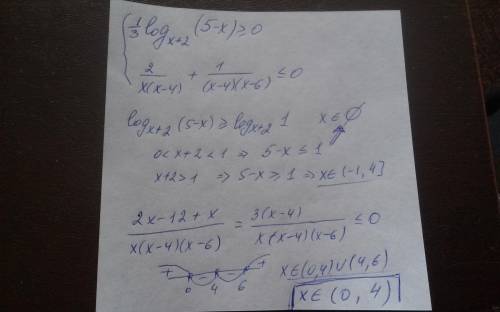 { 1/3 log_{x+2} (5-x) ≥ 0
2/(x(x-4)) + 1/((x-4)(x-6)) ≤ 0
log_{x+2} (5-x) ≥ log_{x+2} 1 x ∈ ∅
0 < x+2 < 1 ⇒ 5-x ≤ 1
x+2 > 1 ⇒ 5-x ≥ 1 ⇒ x ∈ (-1, 4]
(2x-12+x)/(x(x-4)(x-6)) = 3(x-4)/(x(x-4)(x-6)) ≤ 0
+ - - +
0 4 6
x ∈ (0,4) ∪ (4,6)
x ∈ (0, 4)